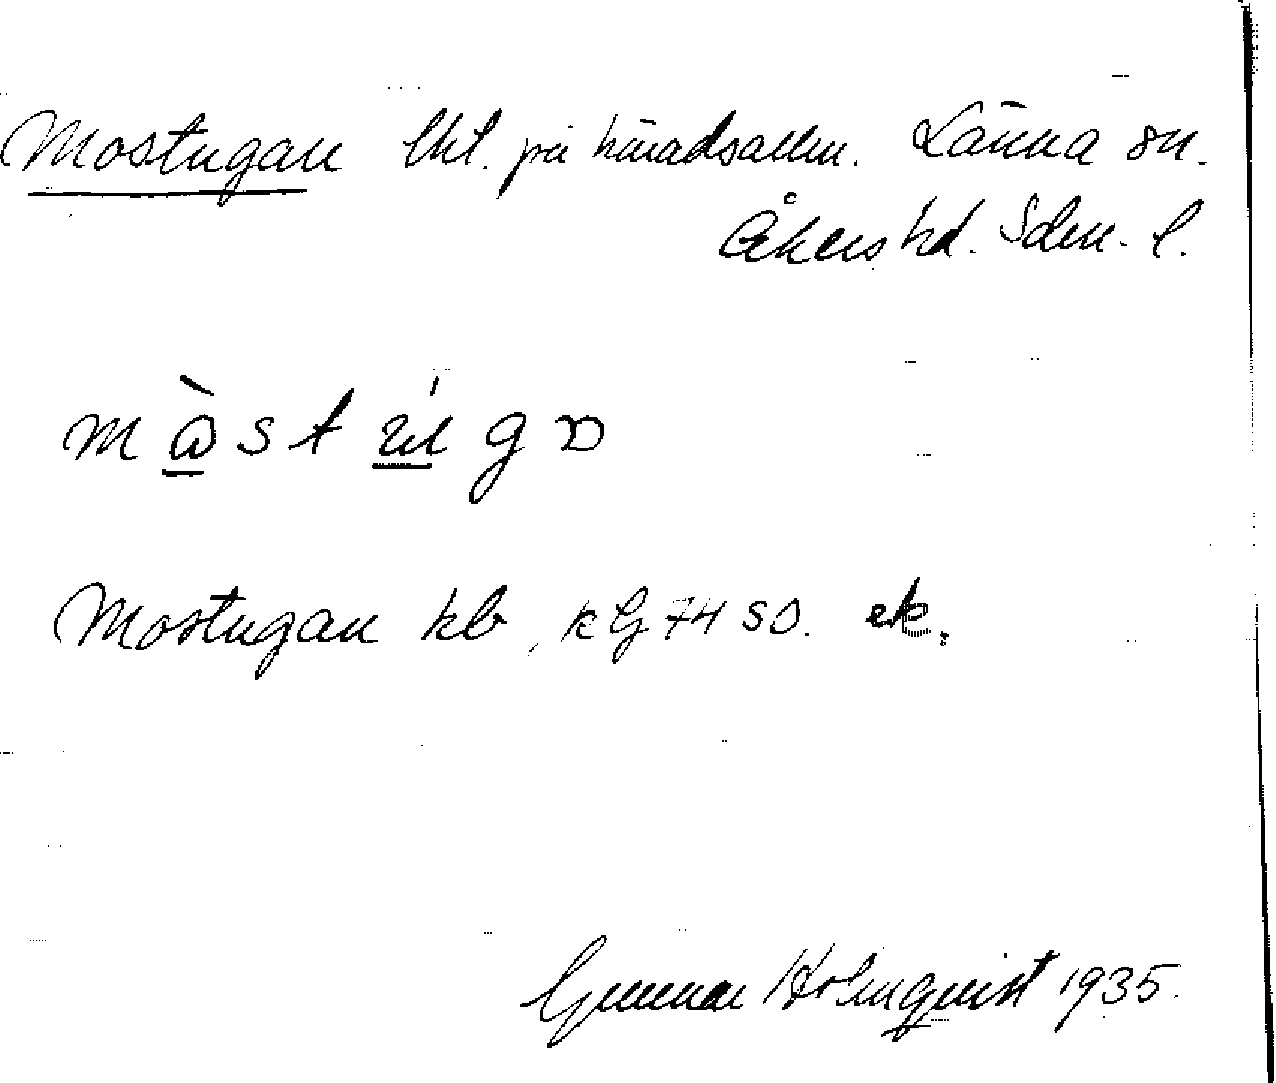 Mostugan lht. på häradsallm. Länna sn.
Åkers hd. Sdm. l.
mòstúgɒ
Mostugan kb, kG 74 SO. ek.
Gunnar Holmquist 1935.